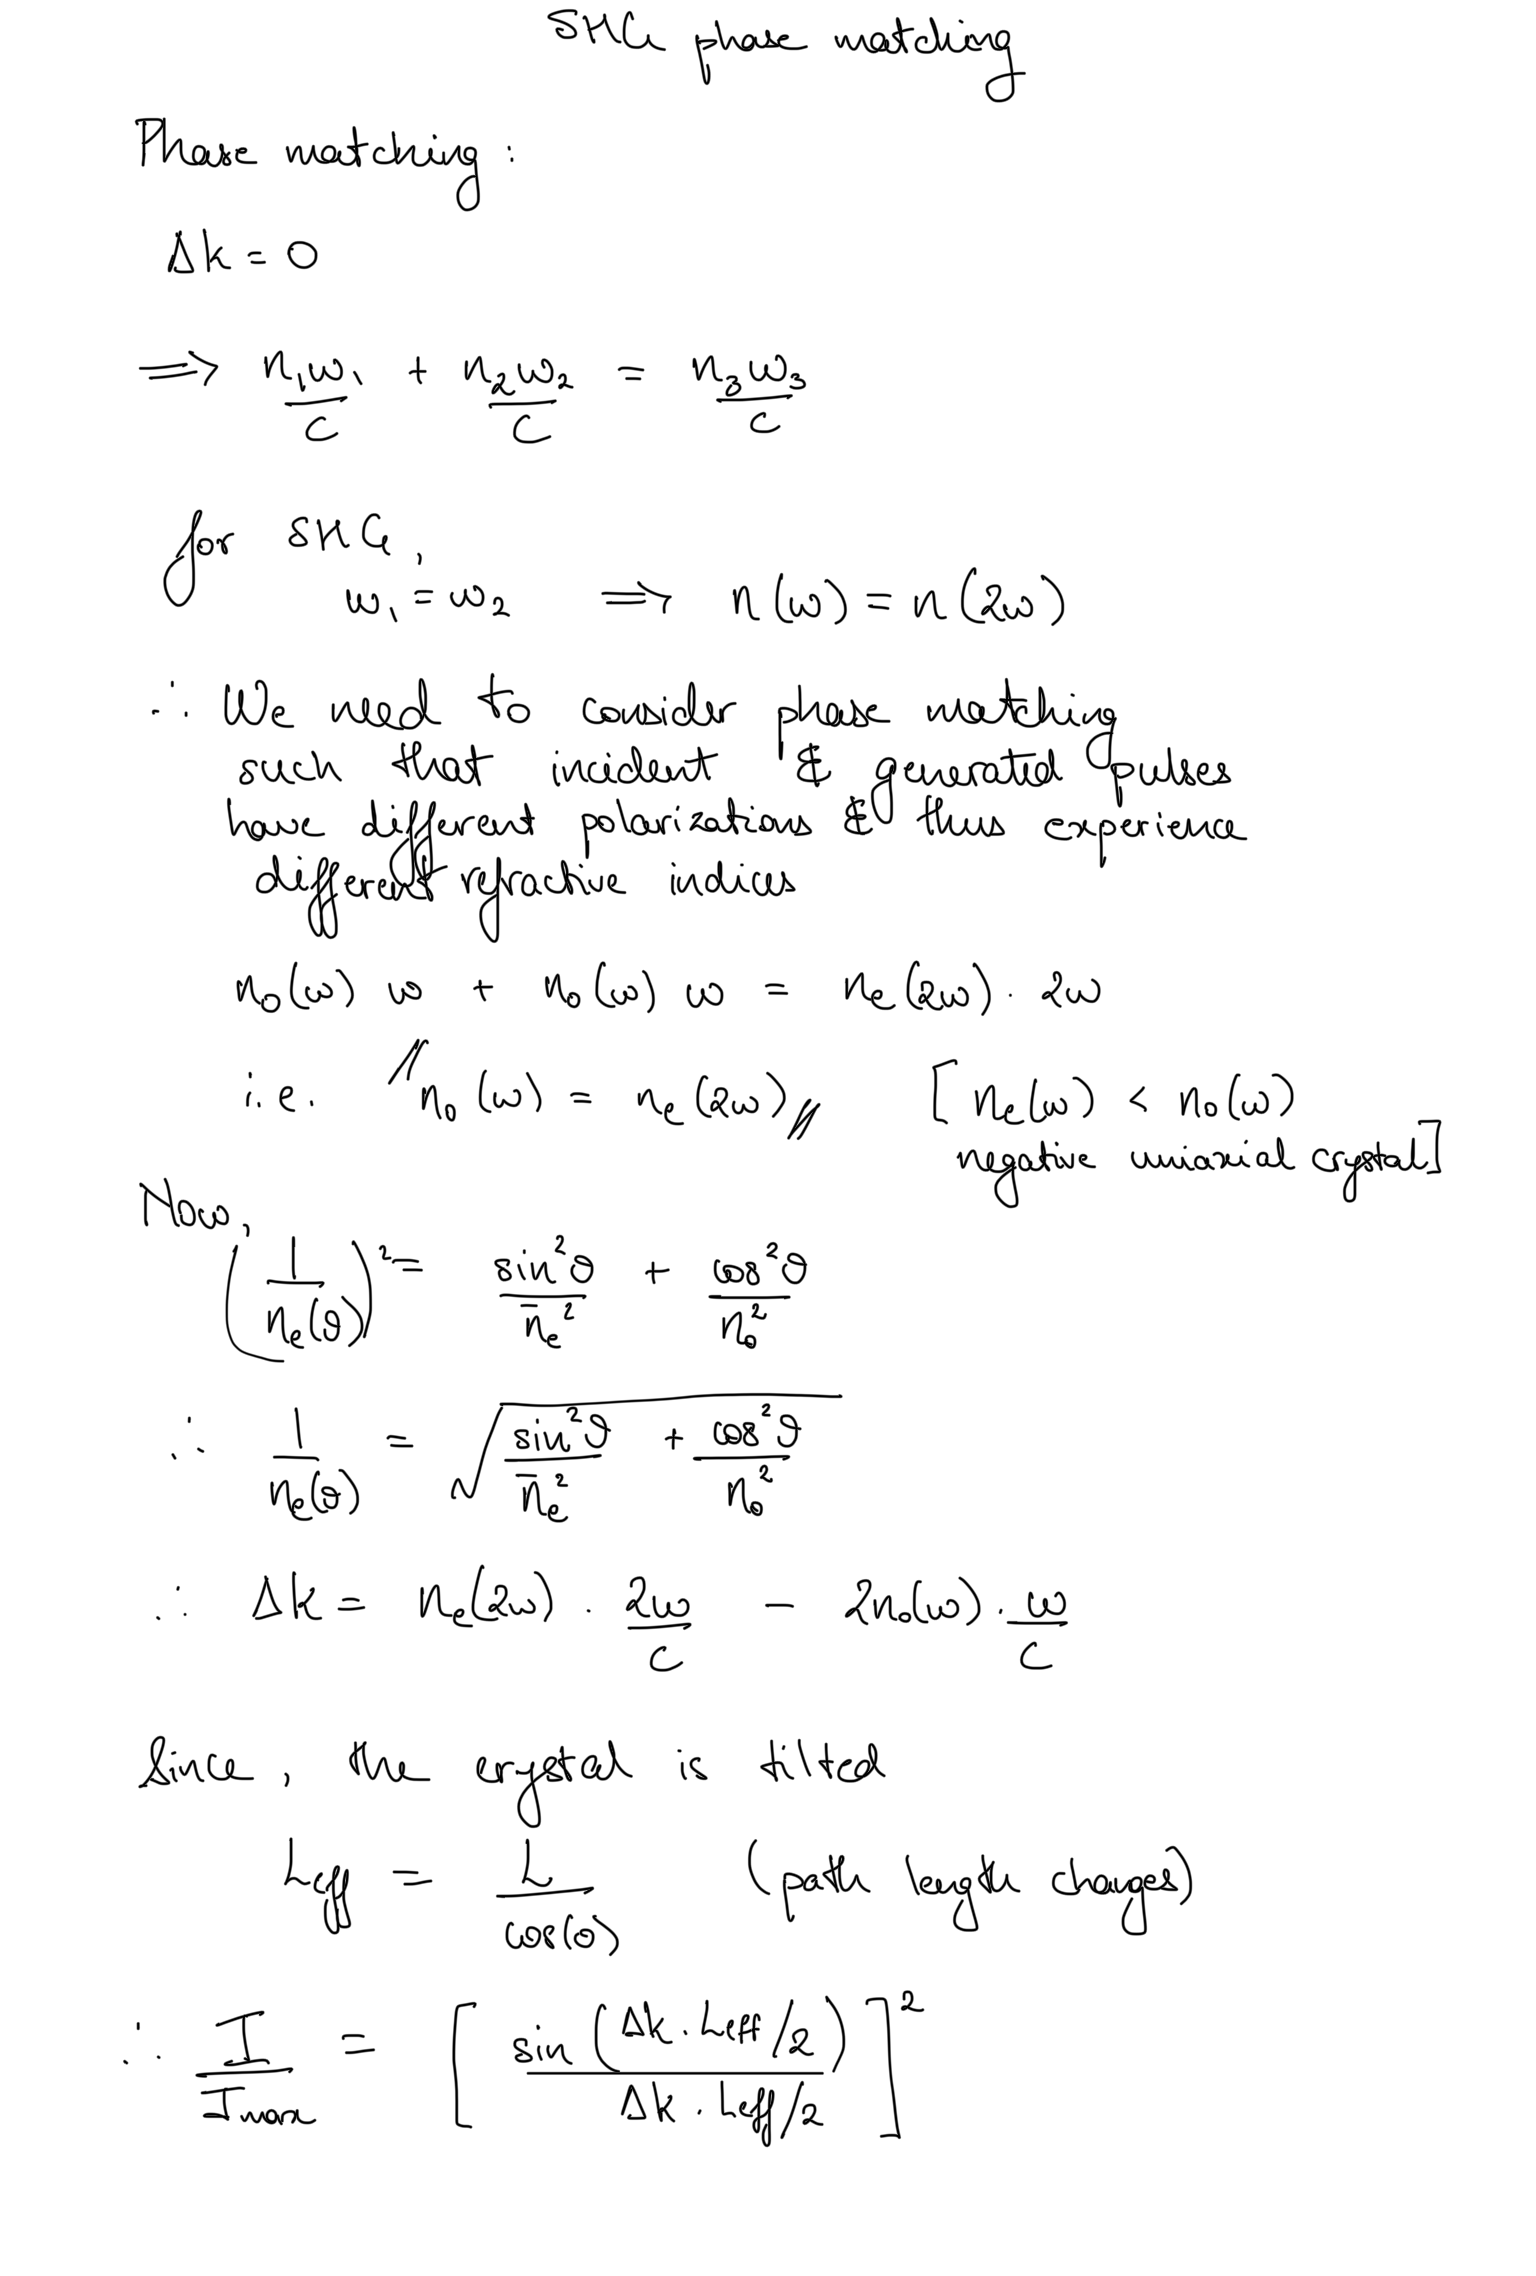 SHG phase matching
Phase matching :
Δk = 0
⟹ n₁ω₁/c + n₂ω₂/c = n₃ω₃/c
for SHG,
ω₁ = ω₂ ⟹ n(ω) = n(2ω)
∴ We need to consider phase matching
such that incident & generated pulses
have different polarizations & thus experience
different refractive indices
n₀(ω) ω + n₀(ω) ω = nₑ(2ω) . 2ω
i.e. // n₀(ω) = nₑ(2ω) // [ nₑ(ω) < n₀(ω)
negative uniaxial crystal ]
Now,
(1/nₑ(θ))² = sin²θ/n̄ₑ² + cos²θ/n₀²
∴ 1/nₑ(θ) = √(sin²θ/n̄ₑ² + cos²θ/n₀²)
∴ Δk = nₑ(2ω) . 2ω/c - 2n₀(ω) . ω/c
Since, the crystal is tilted
Leff = L/cos(θ) (path length changes)
∴ I/Imax = [ sin(Δk . Leff/2) / Δk . Leff/2 ]²